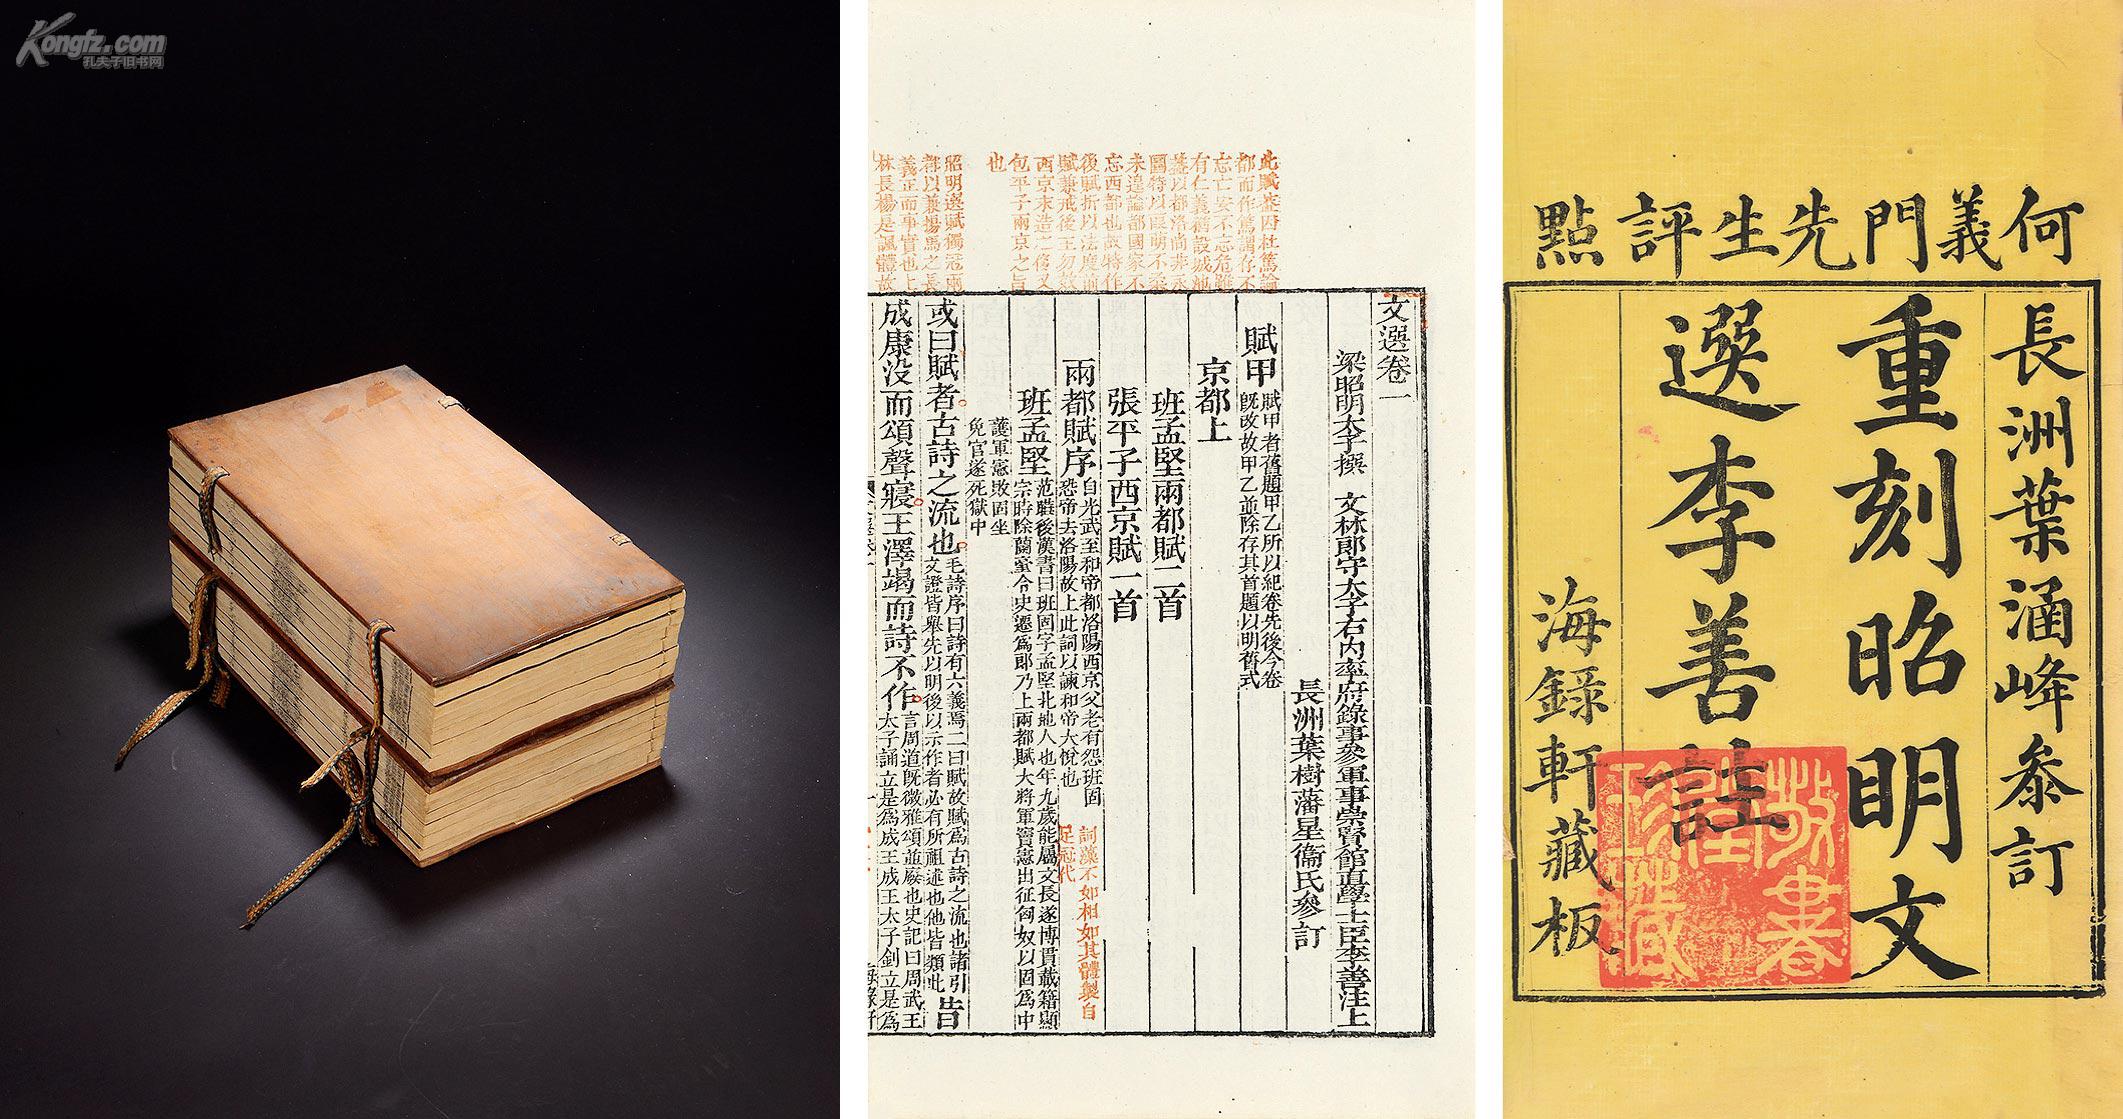 Kongfz.com
孔夫子旧书网
此賦蓋因杜篤論
都而作篤謂存不
忘亡安不忘危雖
有仁義猶設城池
蓋以都洛尚非永
圖特以葭萌不柔
未遑論都國家不
忘西都也故特作
後賦折以法度前
賦兼戒後王勿效
西京末造之侈又
包平子兩京之旨
也
昭明選賦獨冠兩
都以兼揚馬之長
義正而事實也上
林長楊是諷體故
文選卷一
梁昭明太子撰 文林郎守太子右內率府錄事參軍事崇賢館直學士臣李善注上
長洲葉樹藩星衞氏參訂
賦甲 賦甲者舊題甲乙所以紀卷先後今卷
既改故甲乙並除存其首題以明舊式
京都上
班孟堅兩都賦二首
張平子西京賦一首
兩都賦序 自光武至和帝都洛陽西京父老有怨班固
恐帝去洛陽故上此詞以諫和帝大悅也
詞藻不如相如其體製自
足冠代
班孟堅 范曄後漢書曰班固字孟堅北地人也年九歲能屬文長遂博貫載籍顯
宗時除蘭臺令史遷為郎乃上兩都賦大將軍竇憲出征匈奴以固為中
護軍憲敗固坐
免官遂死獄中
或曰賦者古詩之流也 毛詩序曰詩有六義焉二曰賦故賦為古詩之流也諸引
文證皆舉先以明後以示作者必有所祖述也他皆類此 昔
成康沒而頌聲寢王澤竭而詩不作 言周道既微雅頌並廢也史記曰周武王
太子誦立是為成王成王太子釗立是為
何義門先生評點
長洲葉涵峰參訂
重刻昭明文
選李善註
海錄軒藏板